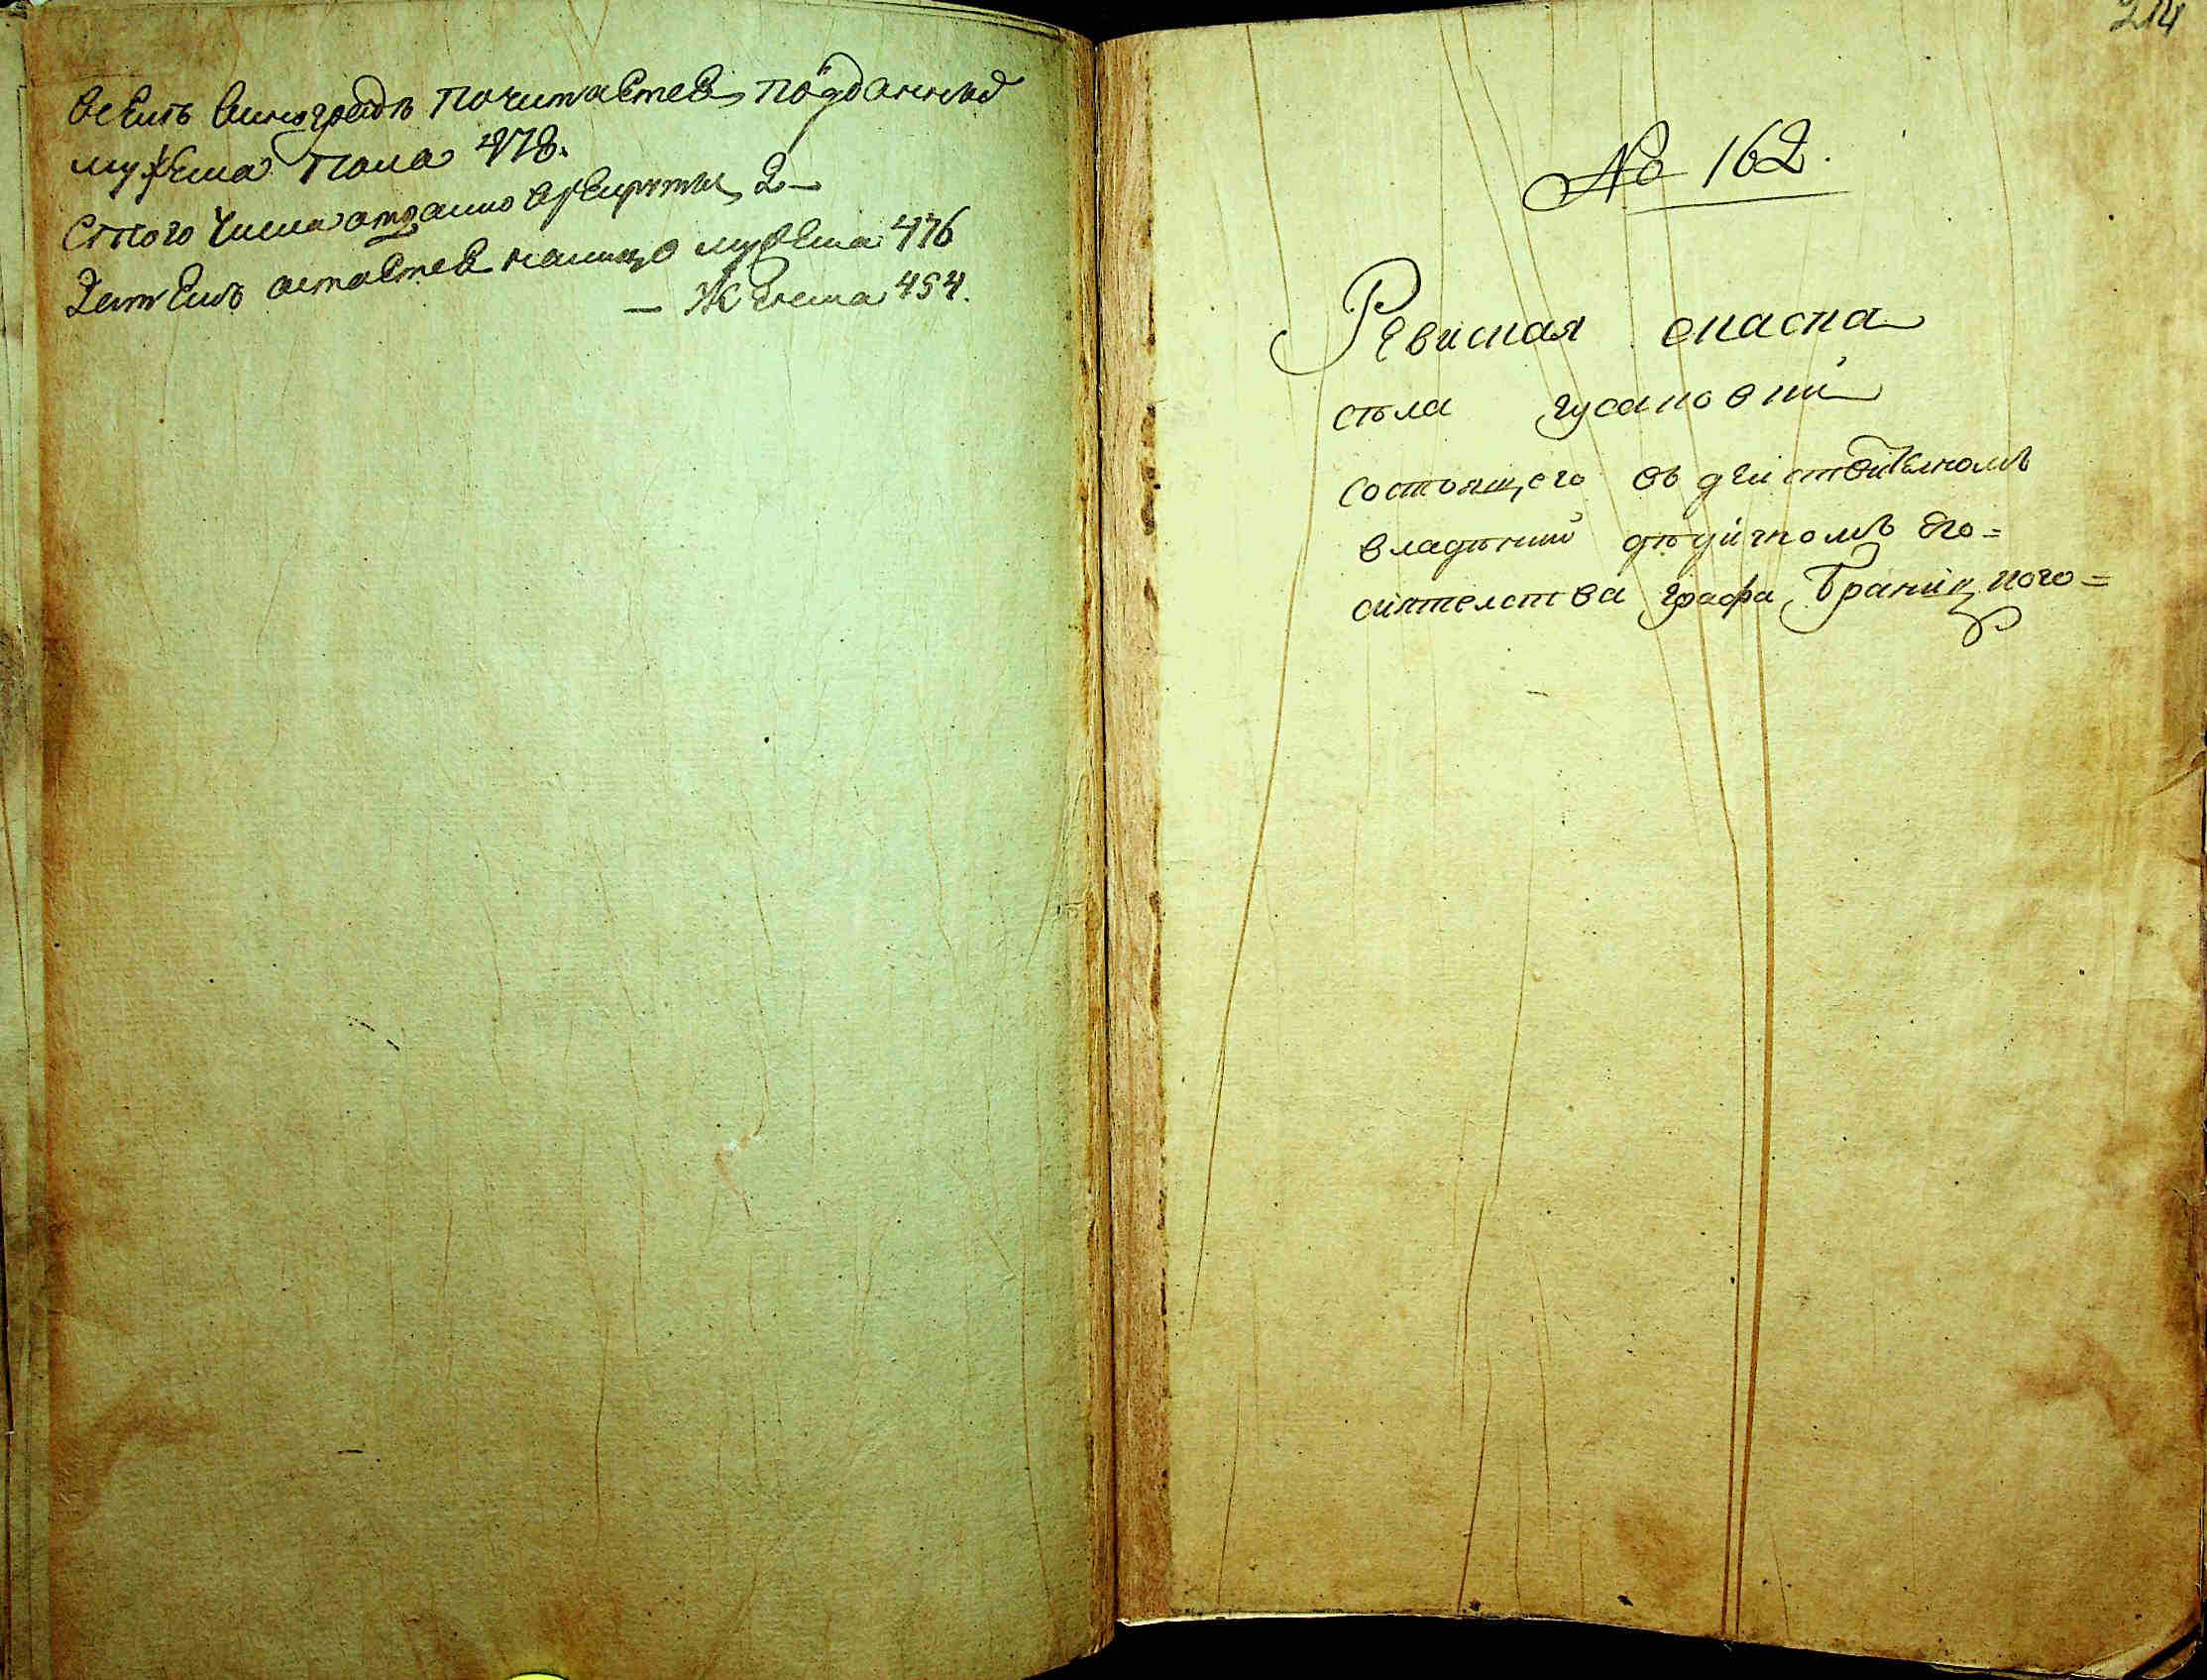 Вселъ Виноградъ почитаетсѧ подданныхъ
мужеска пола 478.
Стого числа отдано врекруты 2 —
Затемъ остаетсѧ налицо мужеска 476
— Женска 454.
214
№ 162.
Ревиская скаска
сѣла гусаковки
состоящего въ действителномъ
владѣнии дѣдичномъ его=
сиятелства графа Браницкого=